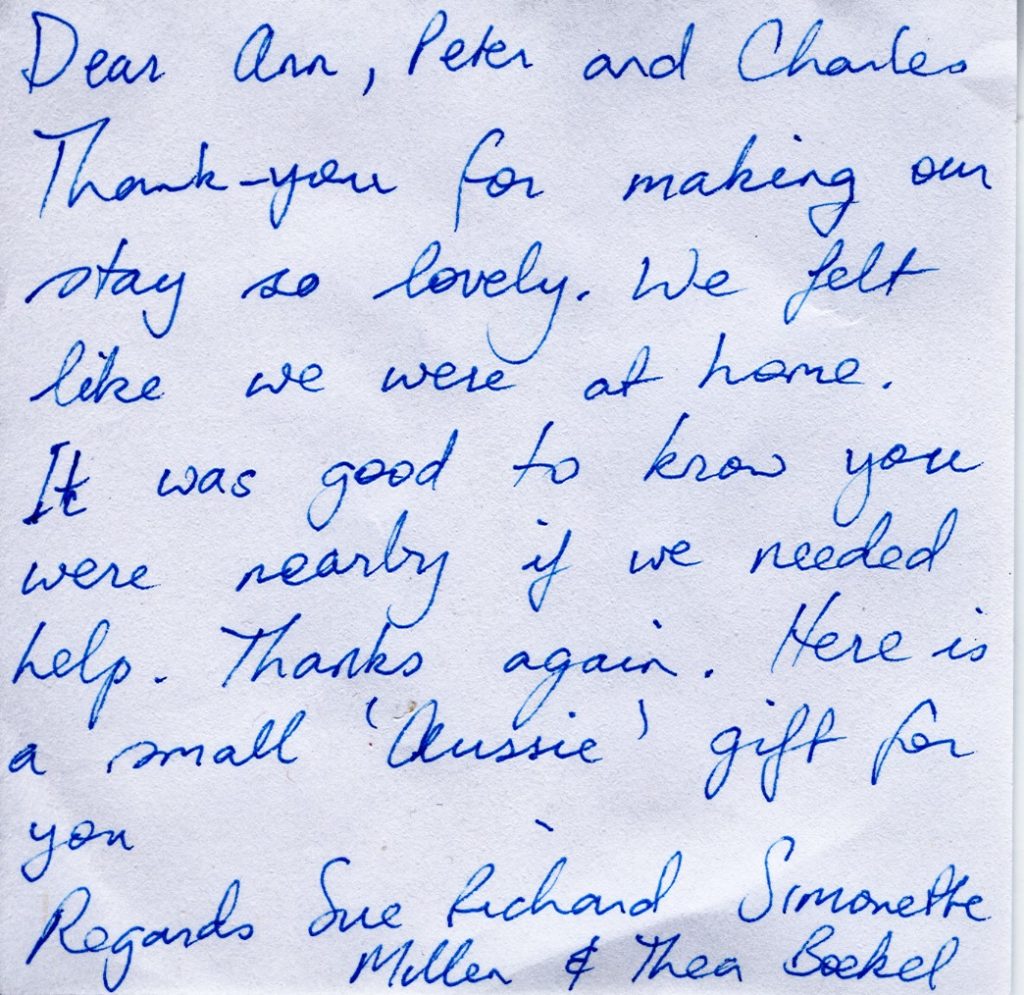 Dear Ann, Peter and Charles
Thank-you for making our
stay so lovely. We felt
like we were at home.
It was good to know you
were nearby if we needed
help. Thanks again. Here is
a small 'Aussie' gift for
you
Regards Sue Richard Simonette
Miller & Thea Boekel